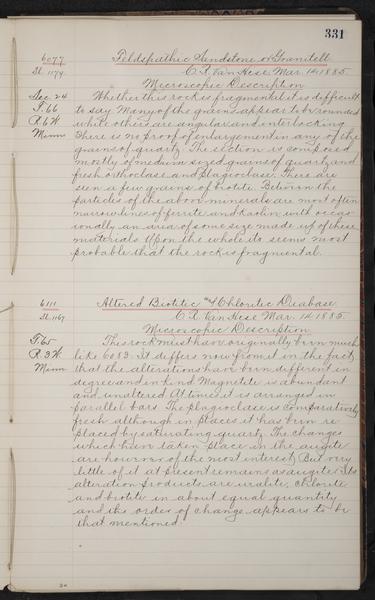 331
6077 Feldspathic Sandstone or Granitell
Sl. 1174. C. R. Van Hise. Mar. 14, 1885.
Microscopic Description
Sec. 24 Whether this rock is fragmental it is difficult
T. 66 to say. Many of the grains appear to be rounded
R. 6 W. while others are angular and interlocking.
Minn There is no proof of enlargement in any of the
grains of quartz. The section is composed
mostly of medium sized grains of quartz and
fresh orthoclase and plagioclase. There are
seen a few grains of biotite. Between the
particles of the above minerals are most often
narrow lines of ferrite and kaolin with occas-
ionally an area of some size made up of these
materials. Upon the whole it seems most
probable that the rock is fragmental.
6111 Altered Biotitic and Chloritic Diabase.
Sl. 1167 C. R. Van Hise Mar. 14, 1885.
Microscopic Description.
T. 65 This rock must have originally been much
R. 3 W. like 6083. It differs now from it in the fact
Minn that the alterations have been different in
degree and in kind. Magnetite is abundant
and unaltered. At times it is arranged in
parallel bars. The plagioclase is comparatively
fresh although in places it has been re-
placed by saturating quartz. The changes
which have taken place in the augite
are however of the most interest. But very
little of it at present remains as augite. Its
alteration products are uralite, chlorite
and biotite in about equal quantity
and the order of change appears to be
that mentioned.